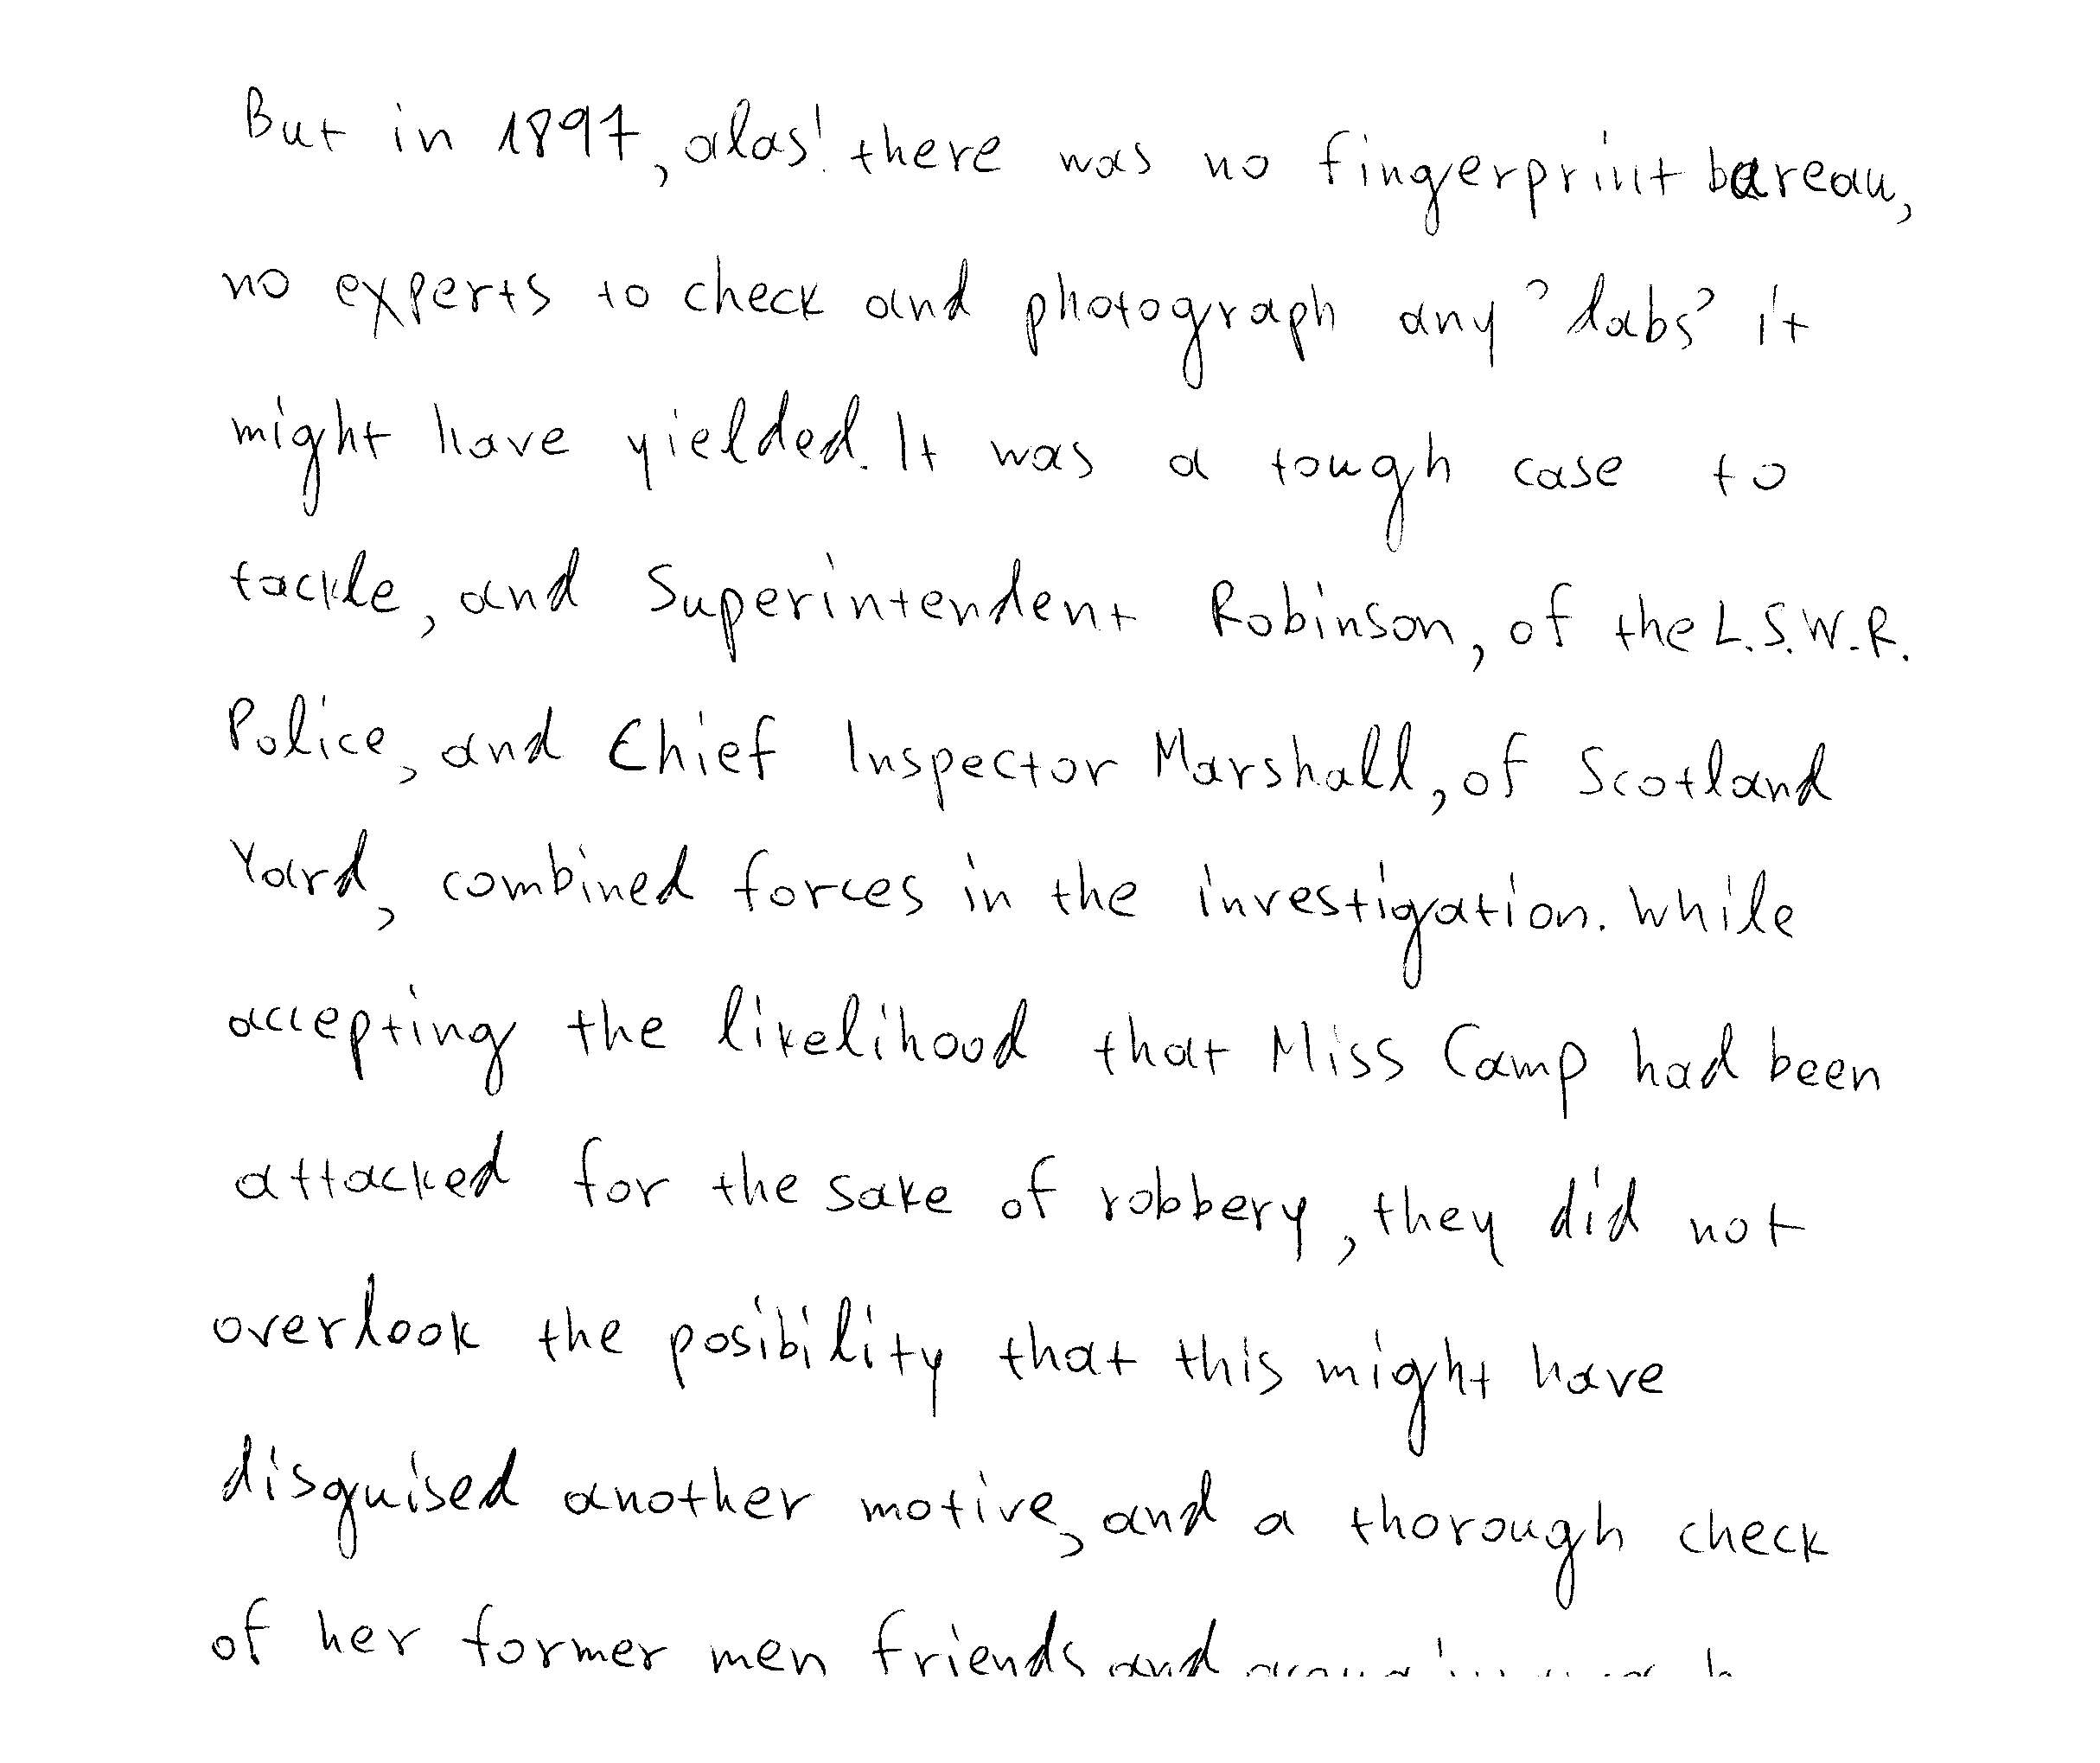 But in 1897, alas! there was no fingerprint bureau,
no experts to check and photograph any 'dabs' it
might have yielded. It was a tough case to
tackle, and Superintendent Robinson, of the L.S.W.R.
Police, and Chief Inspector Marshall, of Scotland
Yard, combined forces in the investigation. While
accepting the likelihood that Miss Camp had been
attacked for the sake of robbery, they did not
overlook the posibility that this might have
disguised another motive, and a thorough check
of her former men friends and